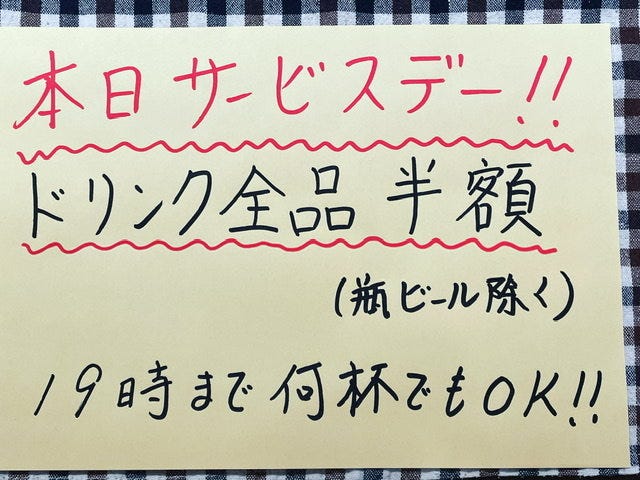 本日サービスデー!!
ドリンク全品 半額
(瓶ビール除く)
19時まで 何杯でもOK!!